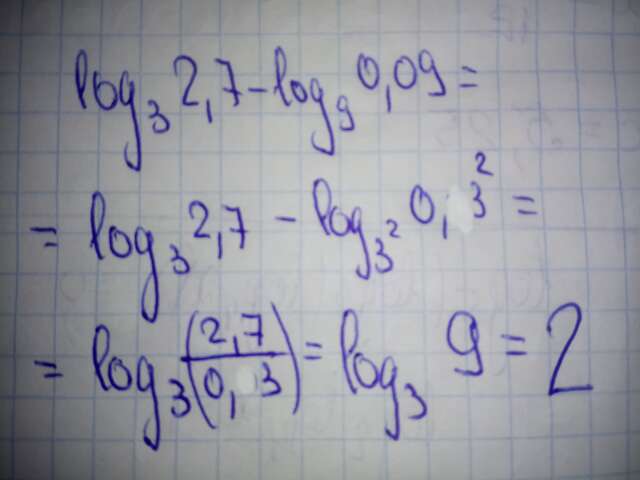 log₃ 2,7 - log₉ 0,09 =
= log₃ 2,7 - log₃² 0,3² =
= log₃(2,7/0,3) = log₃ 9 = 2